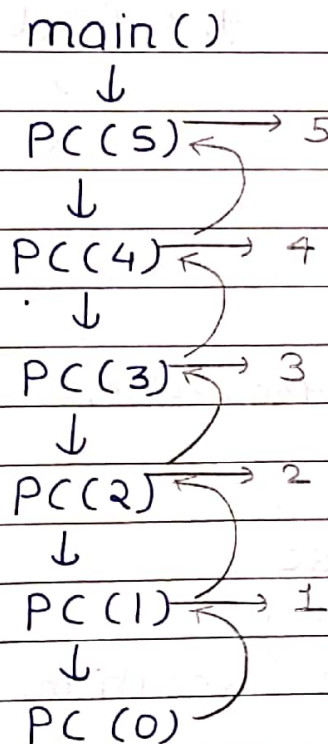 main()
↓
PC(5) → 5
↓
PC(4) → 4
↓
PC(3) → 3
↓
PC(2) → 2
↓
PC(1) → 1
↓
PC(0)